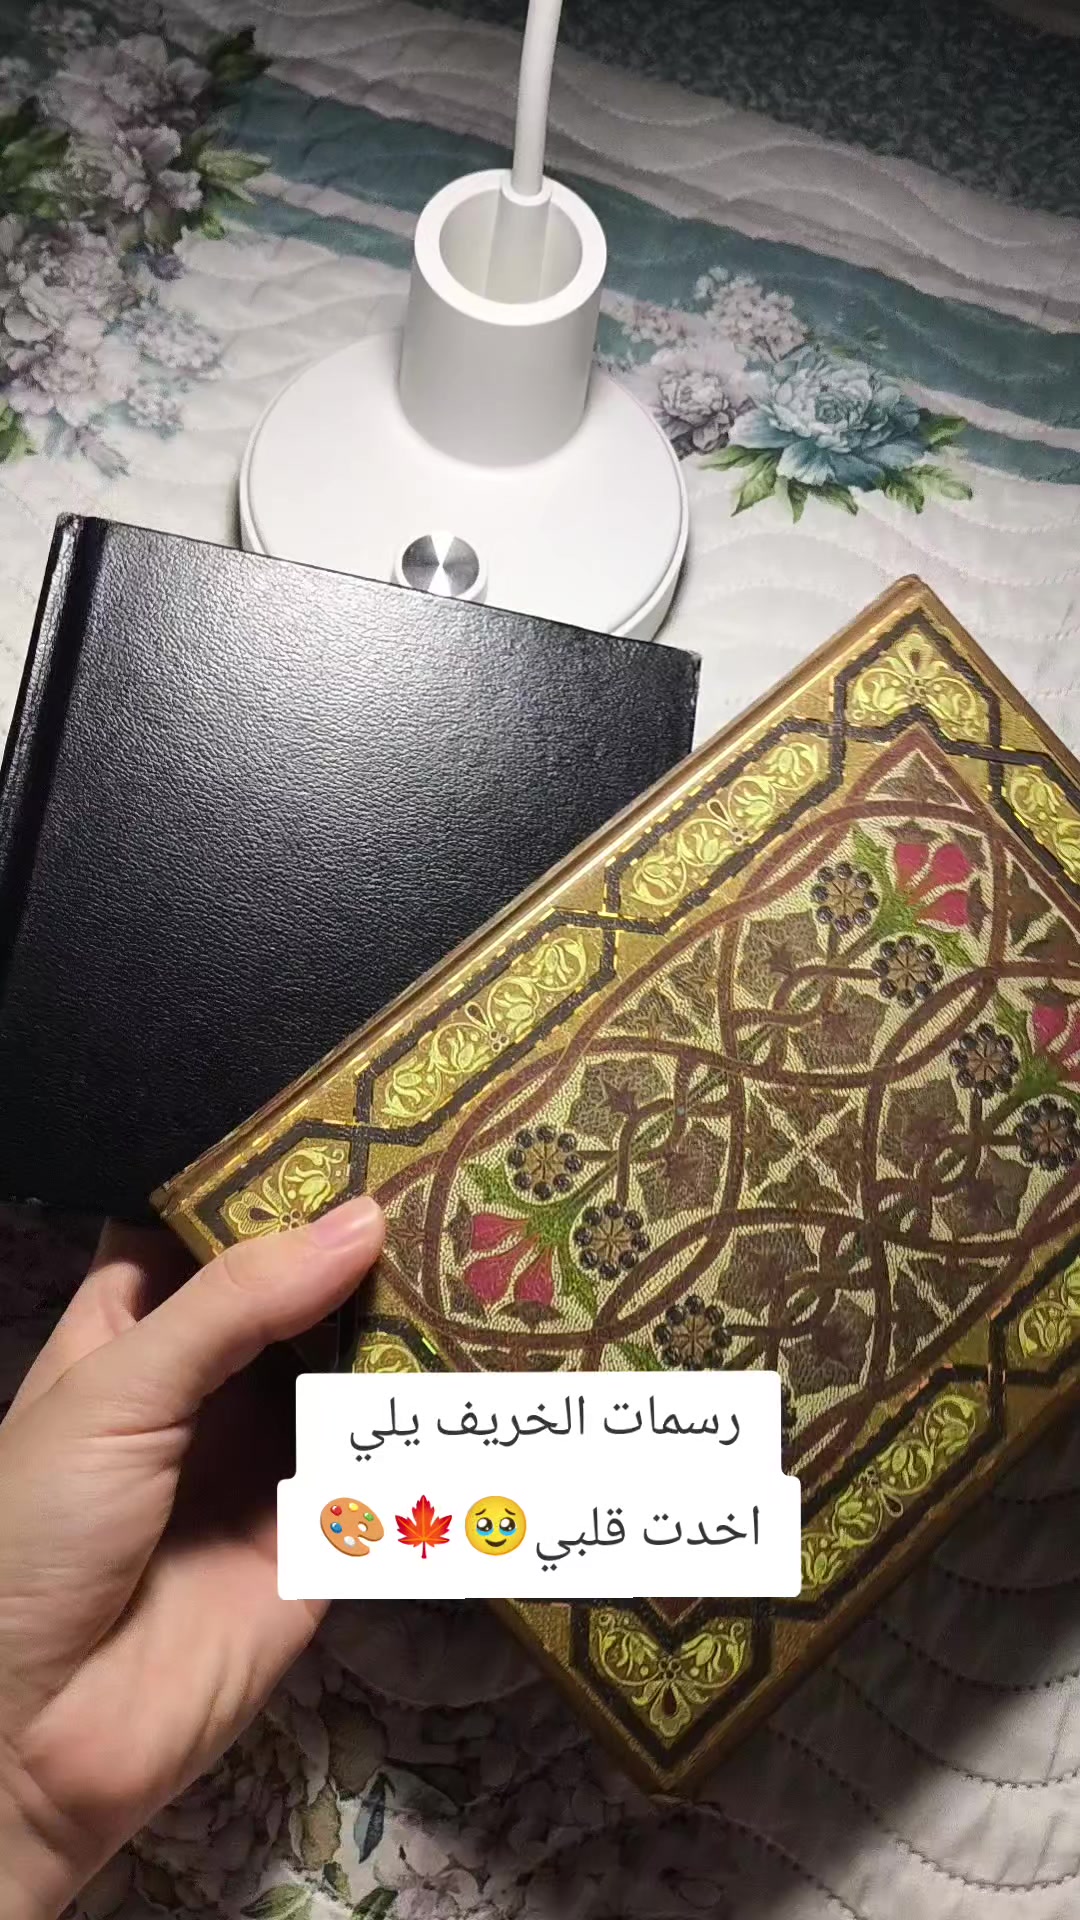 رسمات الخريف يلي
اخدت قلبي🥹🍁🎨